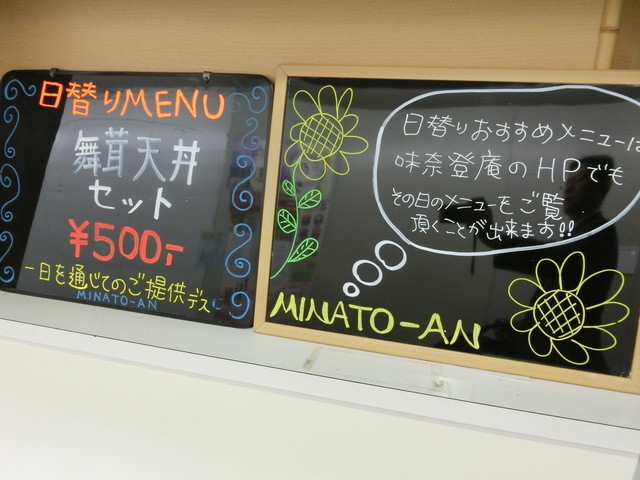 日替りMENU
舞茸天丼
セット
¥500,-
一日を通じてのご提供デス
MINATO-AN
日替りおすすめメニューは
味奈登庵のHPでも
その日のメニューをご覧
頂くことが出来ます!!
MINATO-AN